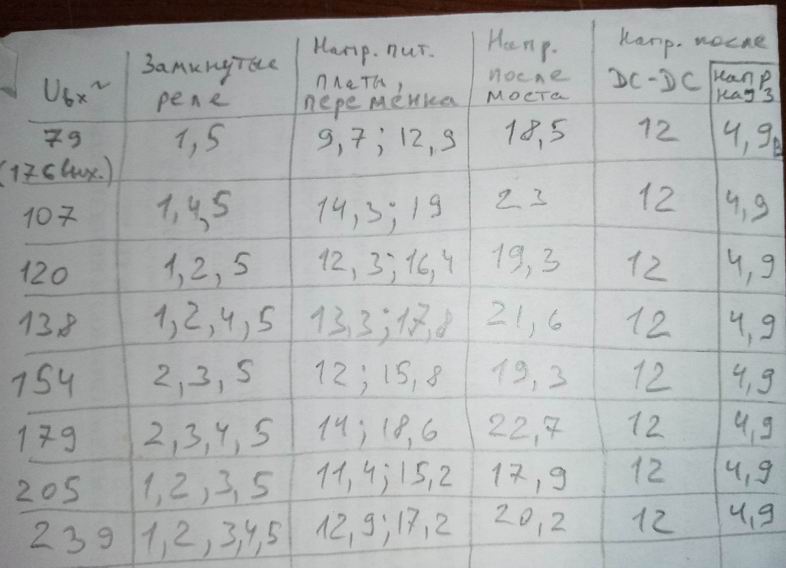 Uвх~ Замкнутые реле Напр. пит. платы, переменка Напр. после моста Напр. после DC-DC Напр на 3
79 (176 вых.) 1,5 9,7; 12,9 18,5 12 4,9В
107 1,4,5 14,3; 19 23 12 4,9
120 1,2,5 12,3; 16,4 19,3 12 4,9
138 1,2,4,5 13,3; 17,8 21,6 12 4,9
154 2,3,5 12; 15,8 19,3 12 4,9
179 2,3,4,5 14; 18,6 22,7 12 4,9
205 1,2,3,5 11,4; 15,2 17,9 12 4,9
239 1,2,3,4,5 12,9; 17,2 20,2 12 4,9